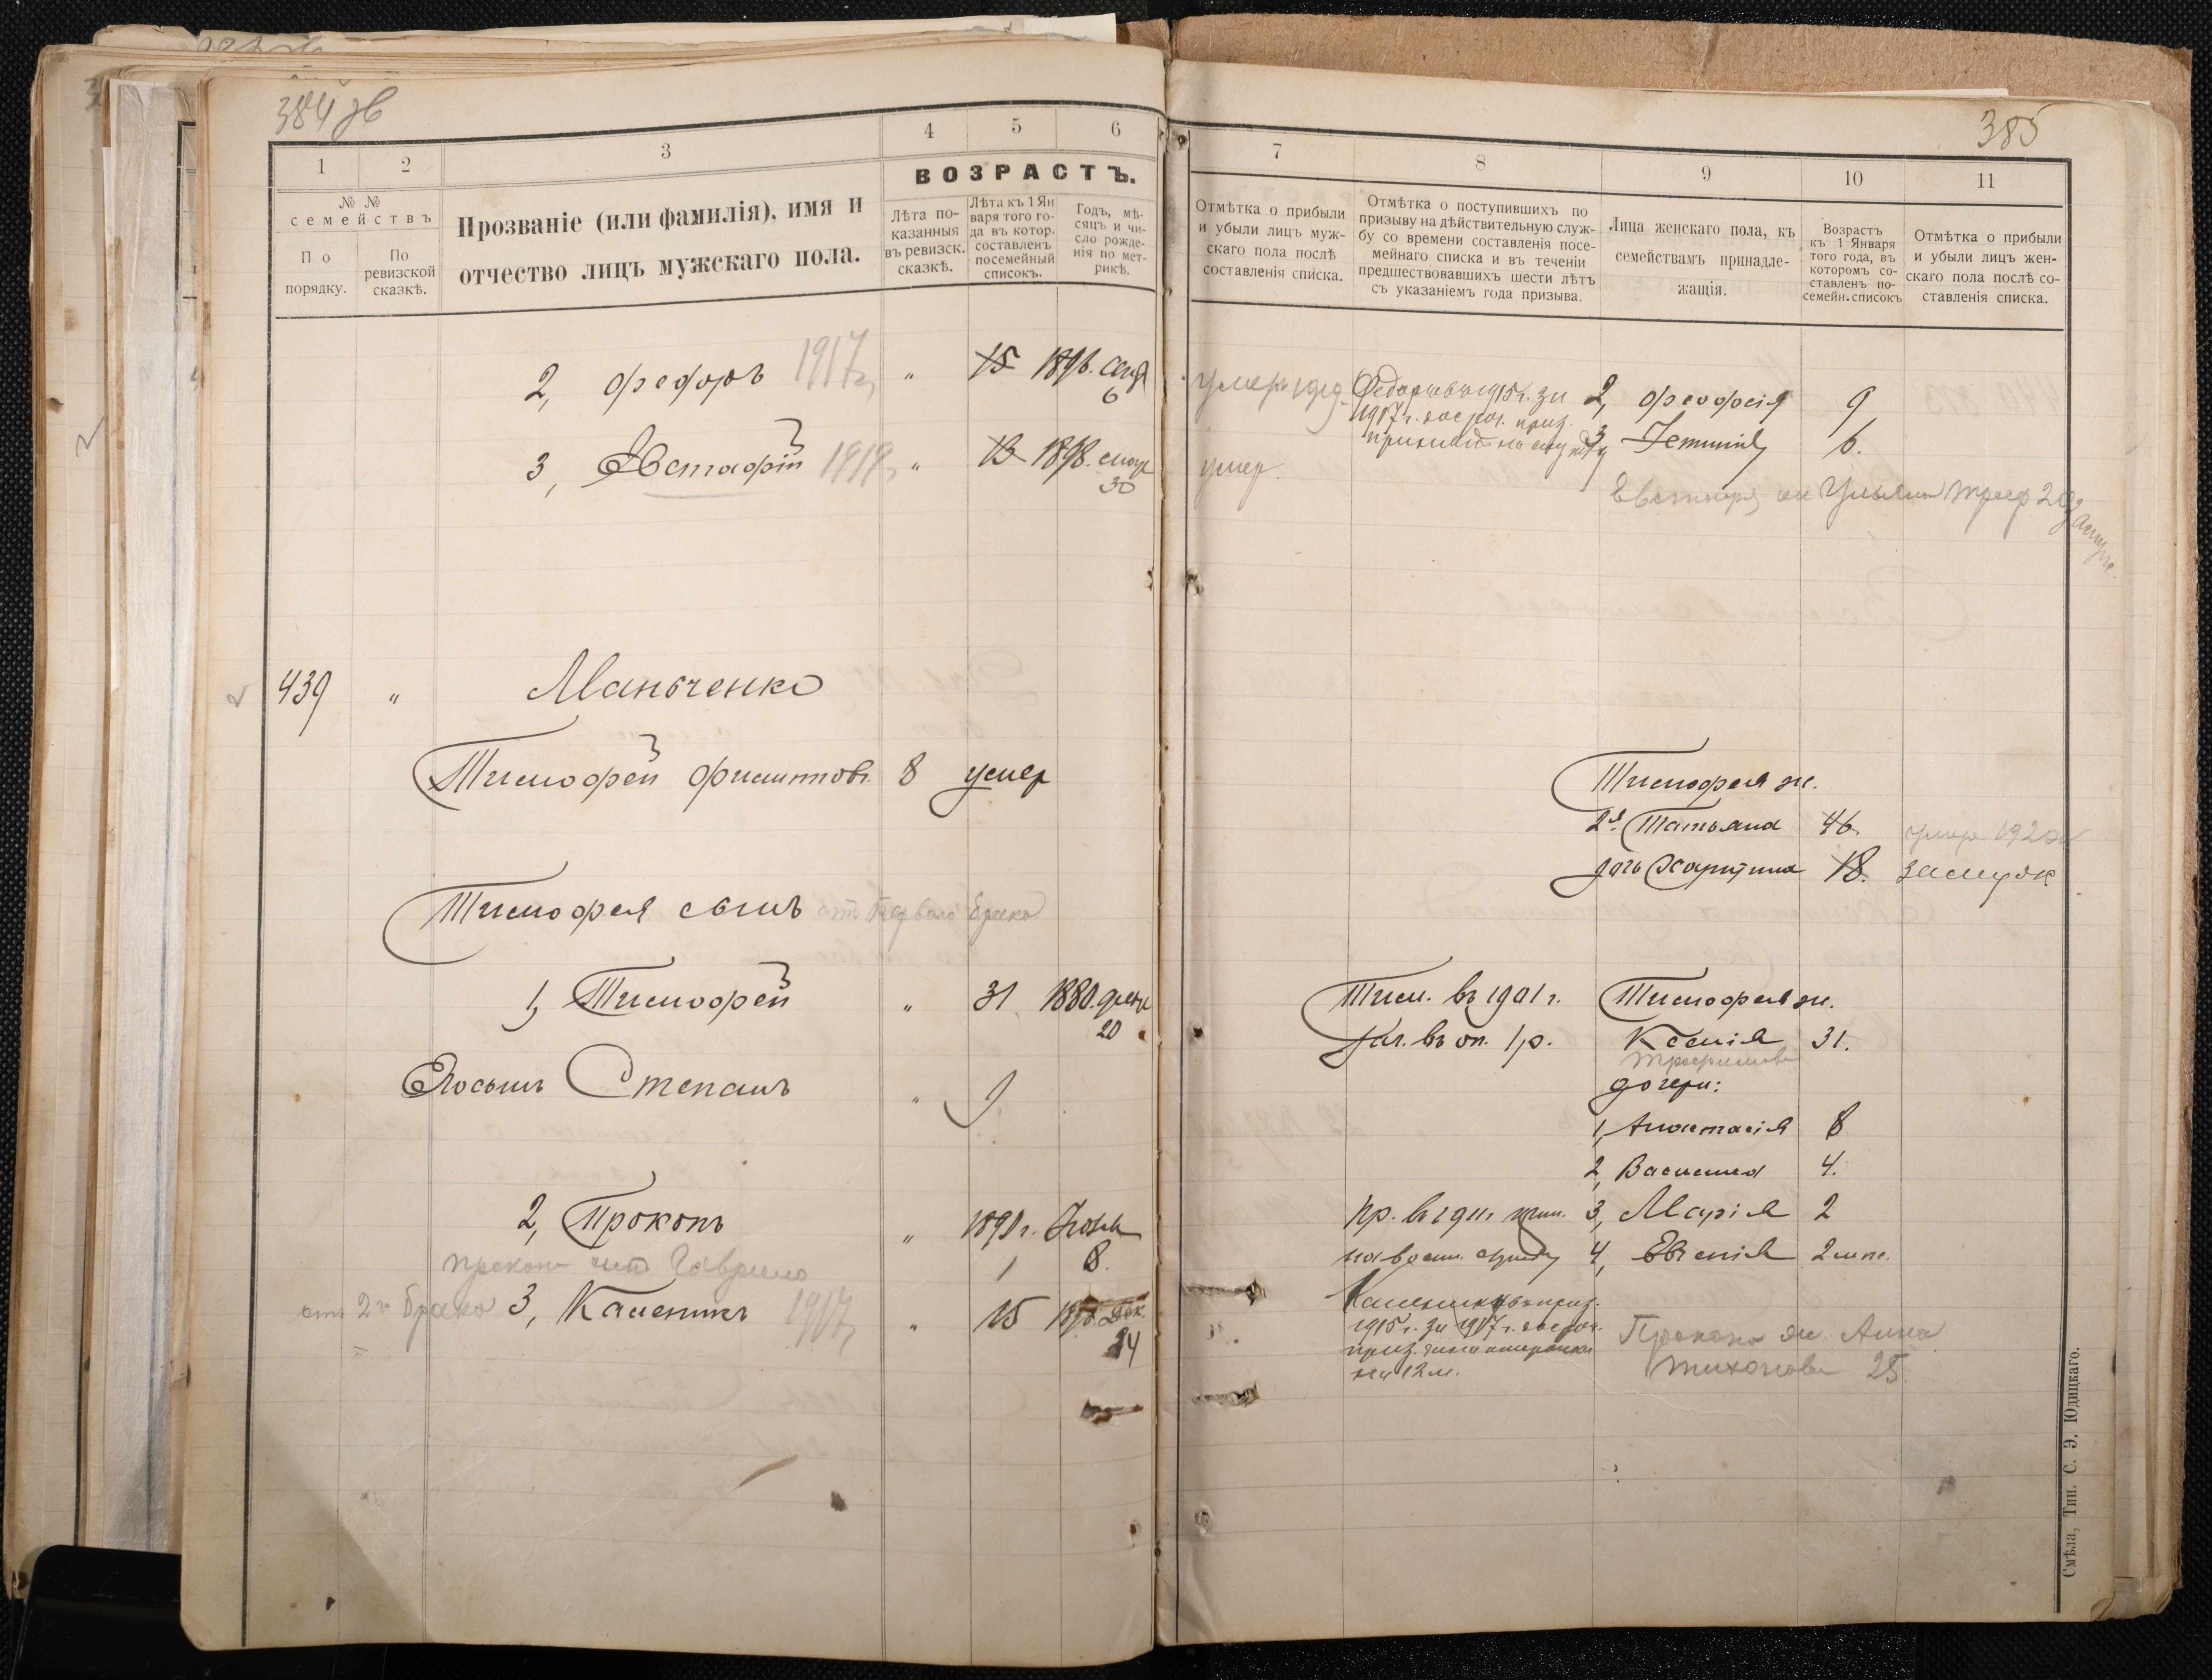 384 зв
1 2 3 4 5 6
№ №
семействъ
По
порядку.
По
ревизской
сказкѣ.
Прозваніе (или фамилія), имя и
отчество лицъ мужскаго пола.
ВОЗРАСТЪ.
Лѣта по-
казанныя
въ ревизск.
сказкѣ.
Лѣта къ 1 Ян
варя того го-
да въ котор.
составленъ
посемейный
списокъ.
Годъ, мѣ-
сяцъ и чи-
сло рожде-
нія по мет-
рикѣ.
2, Федоръ 1917 " 15 1896. сент
6
3, Евстафій 1919 " 13 1898.
30
439 " Маньченко
Тимофей Филиппов. 8 умер
Тимофея сынъ отъ первого брака
1, Тимофей " 31 1880. февр
20
Его сынъ Степанъ "
2, Прокопъ " 1890 г. Іюля
1 8.
Прокоп Гаврило
отъ 2го брака 3, Каленикъ 1917 " 15 Дек.
24
385
7 8 9 10 11
Отмѣтка о прибыли
и убыли лицъ муж-
скаго пола послѣ
составленія списка.
Отмѣтка о поступившихъ по
призыву на дѣйствительную служ-
бу со времени составленія посе-
мейнаго списка и въ теченіи
предшествовавшихъ шести лѣтъ
съ указаніемъ года призыва.
Лица женскаго пола, къ
семействамъ принадле-
жащія.
Возрастъ
къ 1 Января
того года, въ
которомъ со-
ставленъ по-
семейн. списокъ
Отмѣтка о прибыли
и убыли лицъ жен-
скаго пола послѣ со-
ставленія списка.
умер 1919 Федор въ 1915 г. за 2, Феофсія 9
1917 г. досроч. приз.
принятъ на службу 3, 6.
умер.
Евстафія ж Ульяна Троф 20
Тимофея ж.
2я Татьяна 46. умер 192
дочь Харитина 18. замуж
Тим. въ 1901 г. Тимофея ж.
зач. въ оп. 1 р. Ксенія 31.
Трофимова
дочери:
1, Анастасія 8
2, Василиса 4.
Пр. въ 1911 г прин. 3, Марія 2
на воен. службу 4, Евгенія 2 мѣс.
Каленикъ въ приз.
1915 г. за 1917 г. досроч.
приз. отсрочка
на 12 м.
Прокопа ж. Анна
Тихонова 25
Смѣла, Тип. С. Э. Юдицкаго.